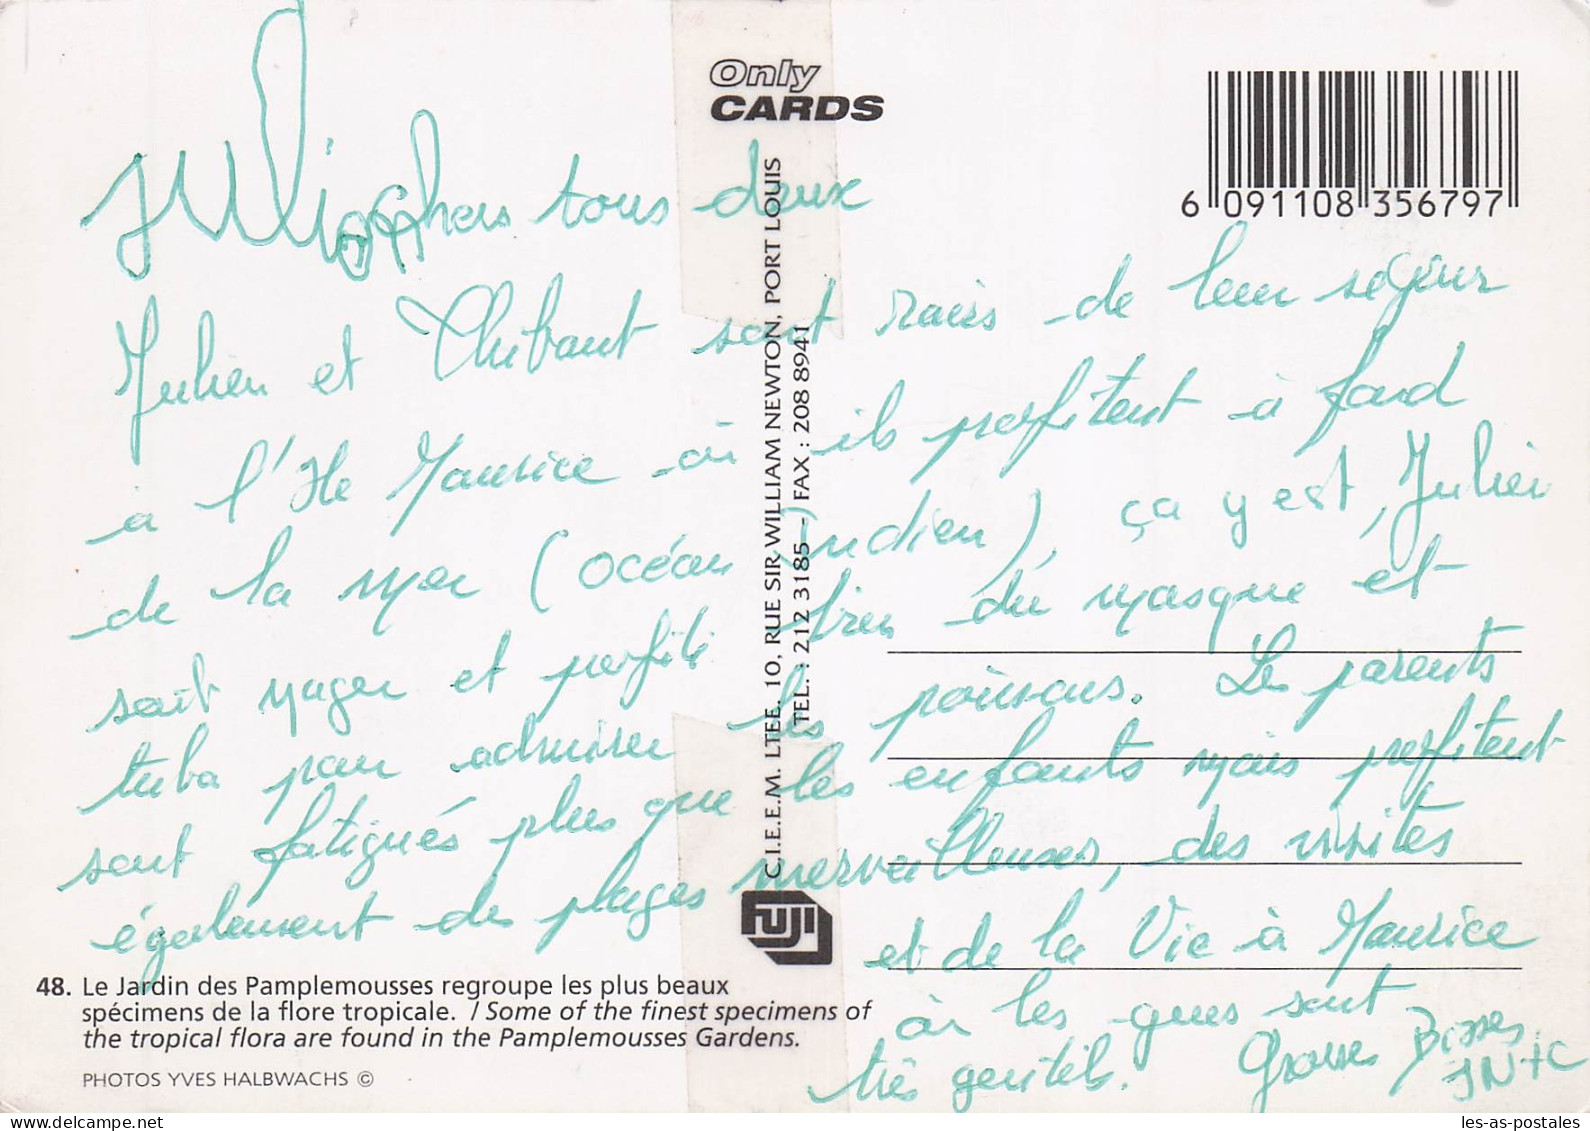 Only
CARDS
6 091108 356797
Julien
Chers tous deux
Julien et Thibaut sont ravis de leur séjour
à l'Ile Maurice où ils profitent à fond
de la mer (océan Indien), ça y est, Julien
sait nager et profite bien du masque et
tuba pour admirer les poissons. Les parents
sont fatigués plus que les enfants mais profitent
également des plages merveilleuses, des visites
et de la Vie à Maurice
où les gens sont
très gentils. Grosses Bises
JN+C
C.I.E.E.M. LTEE, 10, RUE SIR WILLIAM NEWTON, PORT LOUIS
TEL. : 212 3185 - FAX : 208 8941
FUJI
48. Le Jardin des Pamplemousses regroupe les plus beaux
spécimens de la flore tropicale. / Some of the finest specimens of
the tropical flora are found in the Pamplemousses Gardens.
PHOTOS YVES HALBWACHS ©
les-as-postales